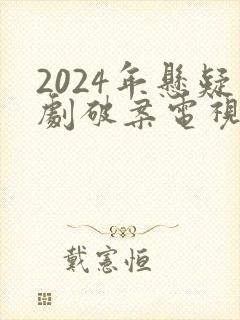 2024年懸疑
劇破案電視
戴憲恒